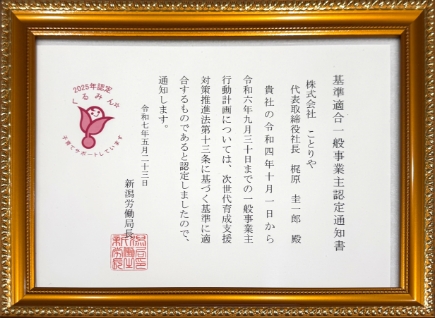 基準適合一般事業主認定通知書
株式会社 ことりや
代表取締役社長 梶原 圭一郎 殿
貴社の令和四年十月一日から
令和六年九月三十日までの一般事業主
行動計画については、次世代育成支援
対策推進法第十三条に基づく基準に適
合するものであると認定しましたので、
通知します。
令和七年五月二十三日
新潟労働局長
2025年認定
くるみん
子育てサポートしています